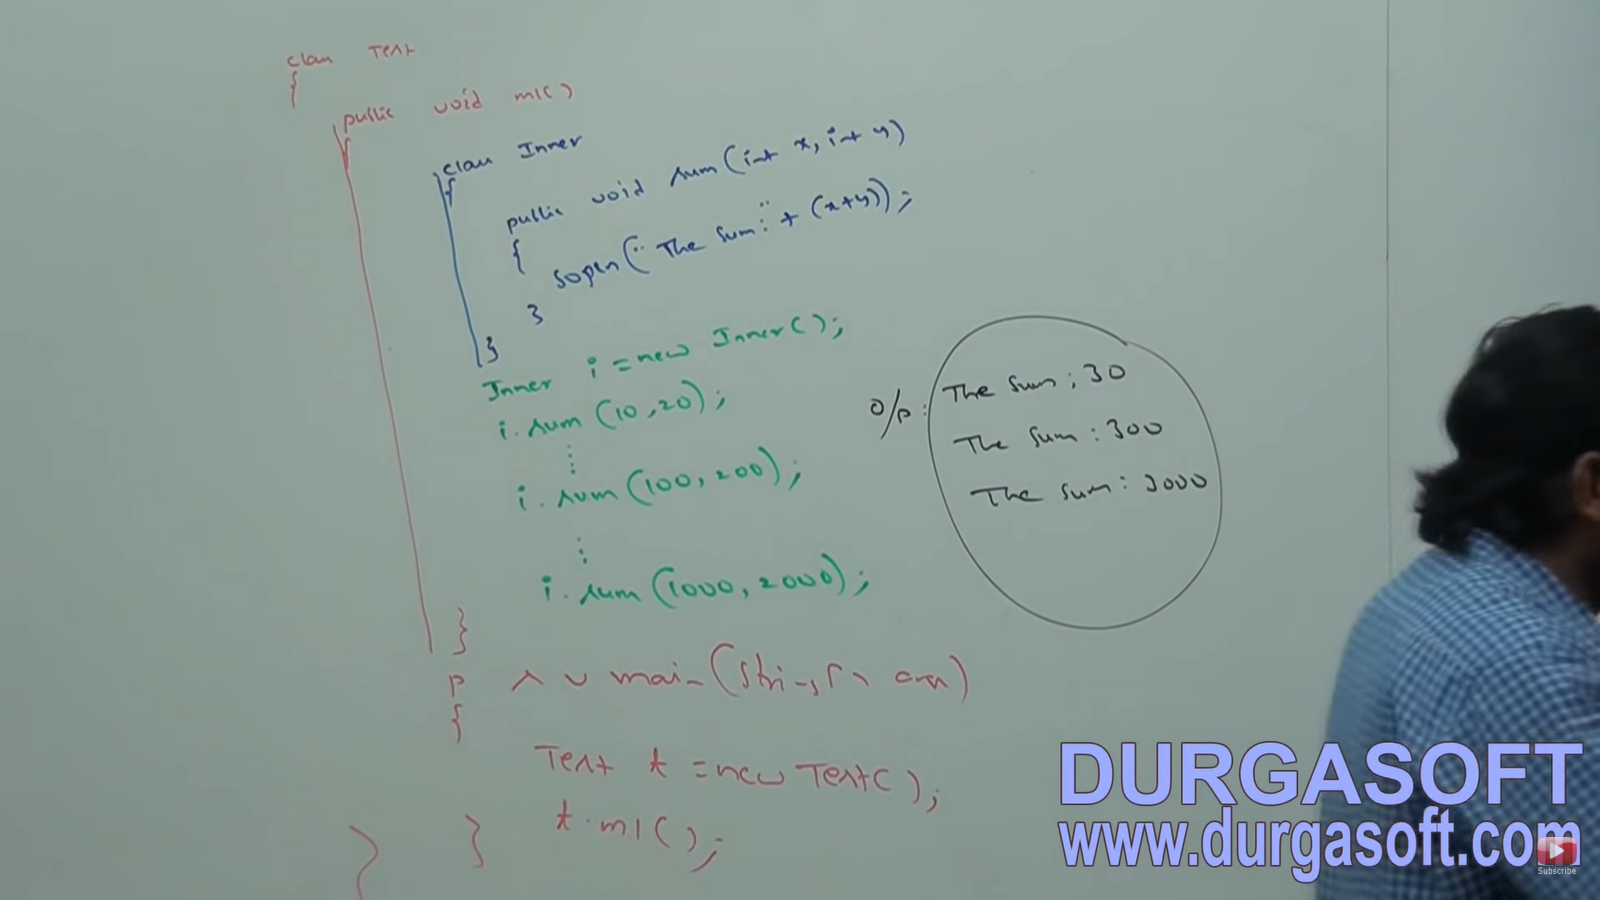 class Test
{
public void m1()
{
class Inner
{
public void sum(int x, int y)
{
sopln("The sum:" + (x+y));
}
}
Inner i = new Inner();
i.sum(10,20);
⋮
i.sum(100,200);
⋮
i.sum(1000,2000);
}
p s v main(String[] args)
{
Test t = new Test();
t.m1();
}
}
O/P: The sum: 30
The sum: 300
The sum: 3000
DURGASOFT
www.durgasoft.com
Subscribe